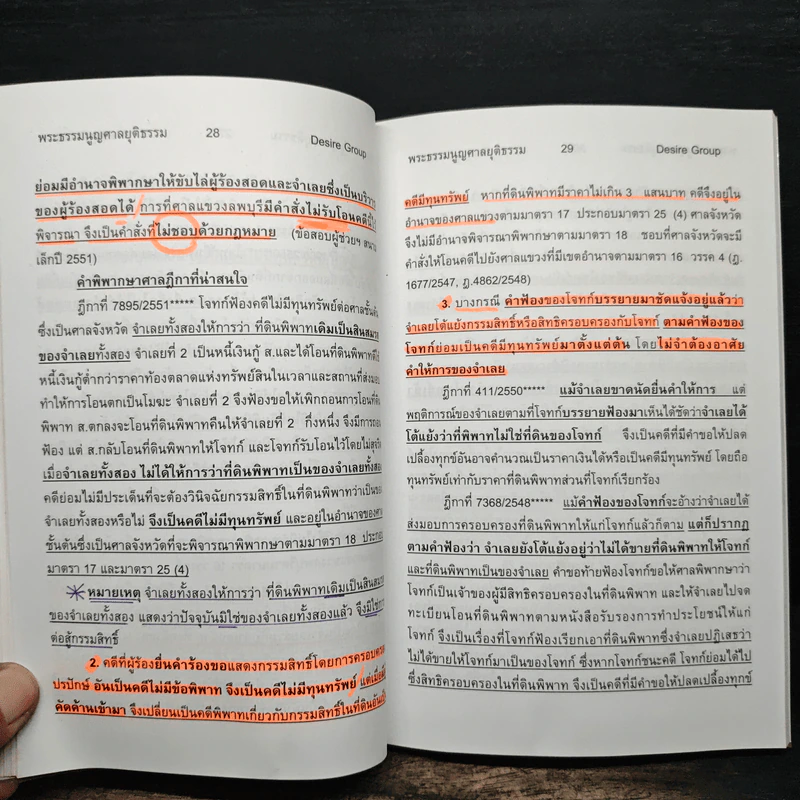 พระธรรมนูญศาลยุติธรรม 28 Desire Group
ย่อมมีอำนาจพิพากษาให้ขับไล่ผู้ร้องสอดและจำเลยซึ่งเป็นบริวาร
ของผู้ร้องสอดได้ การที่ศาลแขวงลพบุรีมีคำสั่งไม่รับโอนคดีนี้ไว้
พิจารณา จึงเป็นคำสั่งที่ไม่ชอบด้วยกฎหมาย (ข้อสอบผู้ช่วยฯ สนาม
เล็กปี 2551)
คำพิพากษาศาลฎีกาที่น่าสนใจ
ฎีกาที่ 7895/2551***** โจทก์ฟ้องคดีไม่มีทุนทรัพย์ต่อศาลชั้นต้น
ซึ่งเป็นศาลจังหวัด จำเลยทั้งสองให้การว่า ที่ดินพิพาทเดิมเป็นสินสมรส
ของจำเลยทั้งสอง จำเลยที่ 2 เป็นหนี้เงินกู้ ส.และได้โอนที่ดินพิพาทตีใช้
หนี้เงินกู้ต่ำกว่าราคาท้องตลาดแห่งทรัพย์สินในเวลาและสถานที่ส่งมอบ
ทำให้การโอนตกเป็นโมฆะ จำเลยที่ 2 จึงฟ้องขอให้เพิกถอนการโอนที่ดิน
พิพาท ส.ตกลงจะโอนที่ดินพิพาทคืนให้จำเลยที่ 2 กึ่งหนึ่ง จึงมีการถอน
ฟ้อง แต่ ส.กลับโอนที่ดินพิพาทให้โจทก์ และโจทก์รับโอนไว้โดยไม่สุจริต
เมื่อจำเลยทั้งสอง ไม่ได้ให้การว่าที่ดินพิพาทเป็นของจำเลยทั้งสอง
คดีย่อมไม่มีประเด็นที่จะต้องวินิจฉัยกรรมสิทธิ์ในที่ดินพิพาทว่าเป็นของ
จำเลยทั้งสองหรือไม่ จึงเป็นคดีไม่มีทุนทรัพย์ และอยู่ในอำนาจของศาล
ชั้นต้นซึ่งเป็นศาลจังหวัดที่จะพิจารณาพิพากษาตามมาตรา 18 ประกอบ
มาตรา 17 และมาตรา 25 (4)
หมายเหตุ จำเลยทั้งสองให้การว่า ที่ดินพิพาทเดิมเป็นสินสมรส
ของจำเลยทั้งสอง แสดงว่าปัจจุบันมิใช่ของจำเลยทั้งสองแล้ว จึงมิใช่การ
ต่อสู้กรรมสิทธิ์
2. คดีที่ผู้ร้องยื่นคำร้องขอแสดงกรรมสิทธิ์โดยการครอบครอง
ปรปักษ์ อันเป็นคดีไม่มีข้อพิพาท จึงเป็นคดีไม่มีทุนทรัพย์ แต่เมื่อมีผู้
คัดค้านเข้ามา จึงเปลี่ยนเป็นคดีพิพาทเกี่ยวกับกรรมสิทธิ์ในที่ดินอันเป็น
พระธรรมนูญศาลยุติธรรม 29 Desire Group
คดีมีทุนทรัพย์ หากที่ดินพิพาทมีราคาไม่เกิน 3 แสนบาท คดีจึงอยู่ใน
อำนาจของศาลแขวงตามมาตรา 17 ประกอบมาตรา 25 (4) ศาลจังหวัด
จึงไม่มีอำนาจพิจารณาพิพากษาตามมาตรา 18 ชอบที่ศาลจังหวัดจะมี
คำสั่งให้โอนคดีไปยังศาลแขวงที่มีเขตอำนาจตามมาตรา 16 วรรค 4 (ฎ.
1677/2547, ฎ.4862/2548)
3. บางกรณี คำฟ้องของโจทก์บรรยายมาชัดแจ้งอยู่แล้วว่า
จำเลยโต้แย้งกรรมสิทธิ์หรือสิทธิครอบครองกับโจทก์ ตามคำฟ้องของ
โจทก์ย่อมเป็นคดีมีทุนทรัพย์มาตั้งแต่ต้น โดยไม่จำต้องอาศัย
คำให้การของจำเลย
ฎีกาที่ 411/2550***** แม้จำเลยขาดนัดยื่นคำให้การ แต่
พฤติการณ์ของจำเลยตามที่โจทก์บรรยายฟ้องมาเห็นได้ชัดว่าจำเลยได้
โต้แย้งว่าที่พิพาทไม่ใช่ที่ดินของโจทก์ จึงเป็นคดีที่มีคำขอให้ปลด
เปลื้องทุกข์อันอาจคำนวณเป็นราคาเงินได้หรือเป็นคดีมีทุนทรัพย์ โดยถือ
ทุนทรัพย์เท่ากับราคาที่ดินพิพาทส่วนที่โจทก์เรียกร้อง
ฎีกาที่ 7368/2548***** แม้คำฟ้องของโจทก์จะอ้างว่าจำเลยได้
ส่งมอบการครอบครองที่ดินพิพาทให้แก่โจทก์แล้วก็ตาม แต่ก็ปรากฏ
ตามคำฟ้องว่า จำเลยยังโต้แย้งอยู่ว่าไม่ได้ขายที่ดินพิพาทให้โจทก์
และที่ดินพิพาทเป็นของจำเลย คำขอท้ายฟ้องโจทก์ขอให้ศาลพิพากษาว่า
โจทก์เป็นเจ้าของผู้มีสิทธิครอบครองในที่ดินพิพาท และให้จำเลยไปจด
ทะเบียนโอนที่ดินพิพาทตามหนังสือรับรองการทำประโยชน์ให้แก่
โจทก์ จึงเป็นเรื่องที่โจทก์ฟ้องเรียกเอาที่ดินพิพาทซึ่งจำเลยปฏิเสธว่า
ไม่ได้ขายให้โจทก์มาเป็นของโจทก์ ซึ่งหากโจทก์ชนะคดี โจทก์ย่อมได้ไป
ซึ่งสิทธิครอบครองในที่ดินพิพาท จึงเป็นคดีที่มีคำขอให้ปลดเปลื้องทุกข์